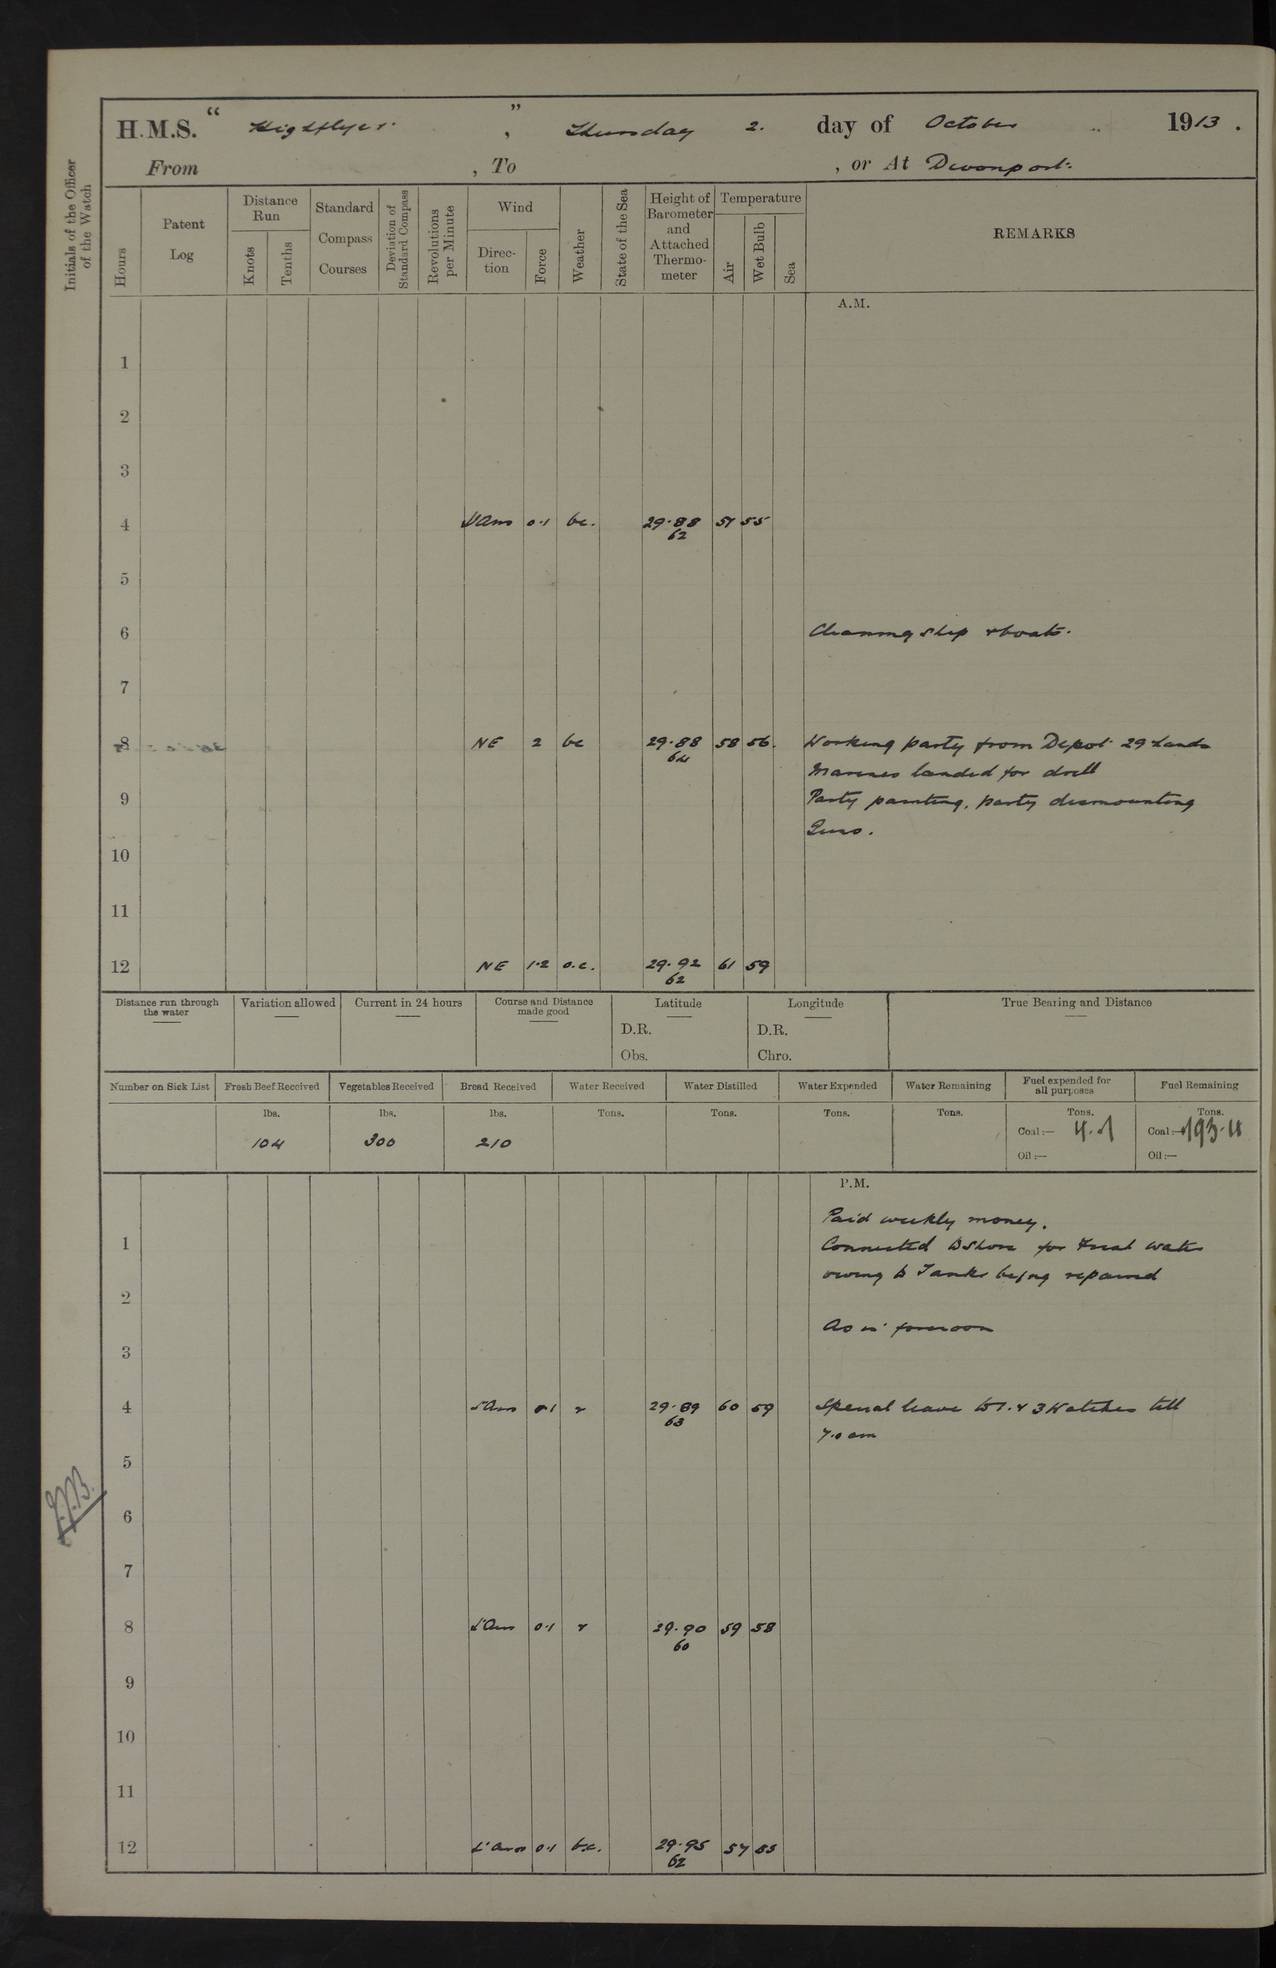 H.M.S. “ Highflyer. ” , Thursday 2. day of October 1913 .
From , To , or At Devonport.
Initials of the Officer of the Watch
Hours
Patent Log
Distance Run
Knots
Tenths
Standard Compass Courses
Deviation of Standard Compass
Revolutions per Minute
Wind
Direction
Force
Weather
State of the Sea
Height of Barometer and Attached Thermometer
Temperature
Air
Wet Bulb
Sea
REMARKS
A.M.
1
2
3
4 0.1 bc. 29.88 57 55
62
5
6 Cleaning ship & boats.
7
8 NE 2 bc 29.88 58 56. Working party from Depot 29 hands
64
Marines landed for drill
9 Party painting, party dismounting
Guns.
10
11
12 NE 1.2 o.c. 29.92 61 59
62
Distance run through the water
Variation allowed
Current in 24 hours
Course and Distance made good
Latitude
D.R.
Obs.
Longitude
D.R.
Chro.
True Bearing and Distance
Number on Sick List
Fresh Beef Received
Vegetables Received
Bread Received
Water Received
Water Distilled
Water Expended
Water Remaining
Fuel expended for all purposes
Fuel Remaining
lbs. lbs. lbs. Tons. Tons. Tons. Tons. Tons. Tons.
104 300 210 Coal:— Coal:—
Oil:— Oil:—
P.M.
Paid weekly money.
1 Connected to Shore for Fresh water
owing to Tanks being repaired
2
As in forenoon
3
4 0.1 r 29.89 60 59 Special leave to 1. & 3 Watches till
63
7.0 am
5
6
7
8 0.1 r 29.90 59 58
60
9
10
11
12 0.1 b.c. 29.95 57 55
62